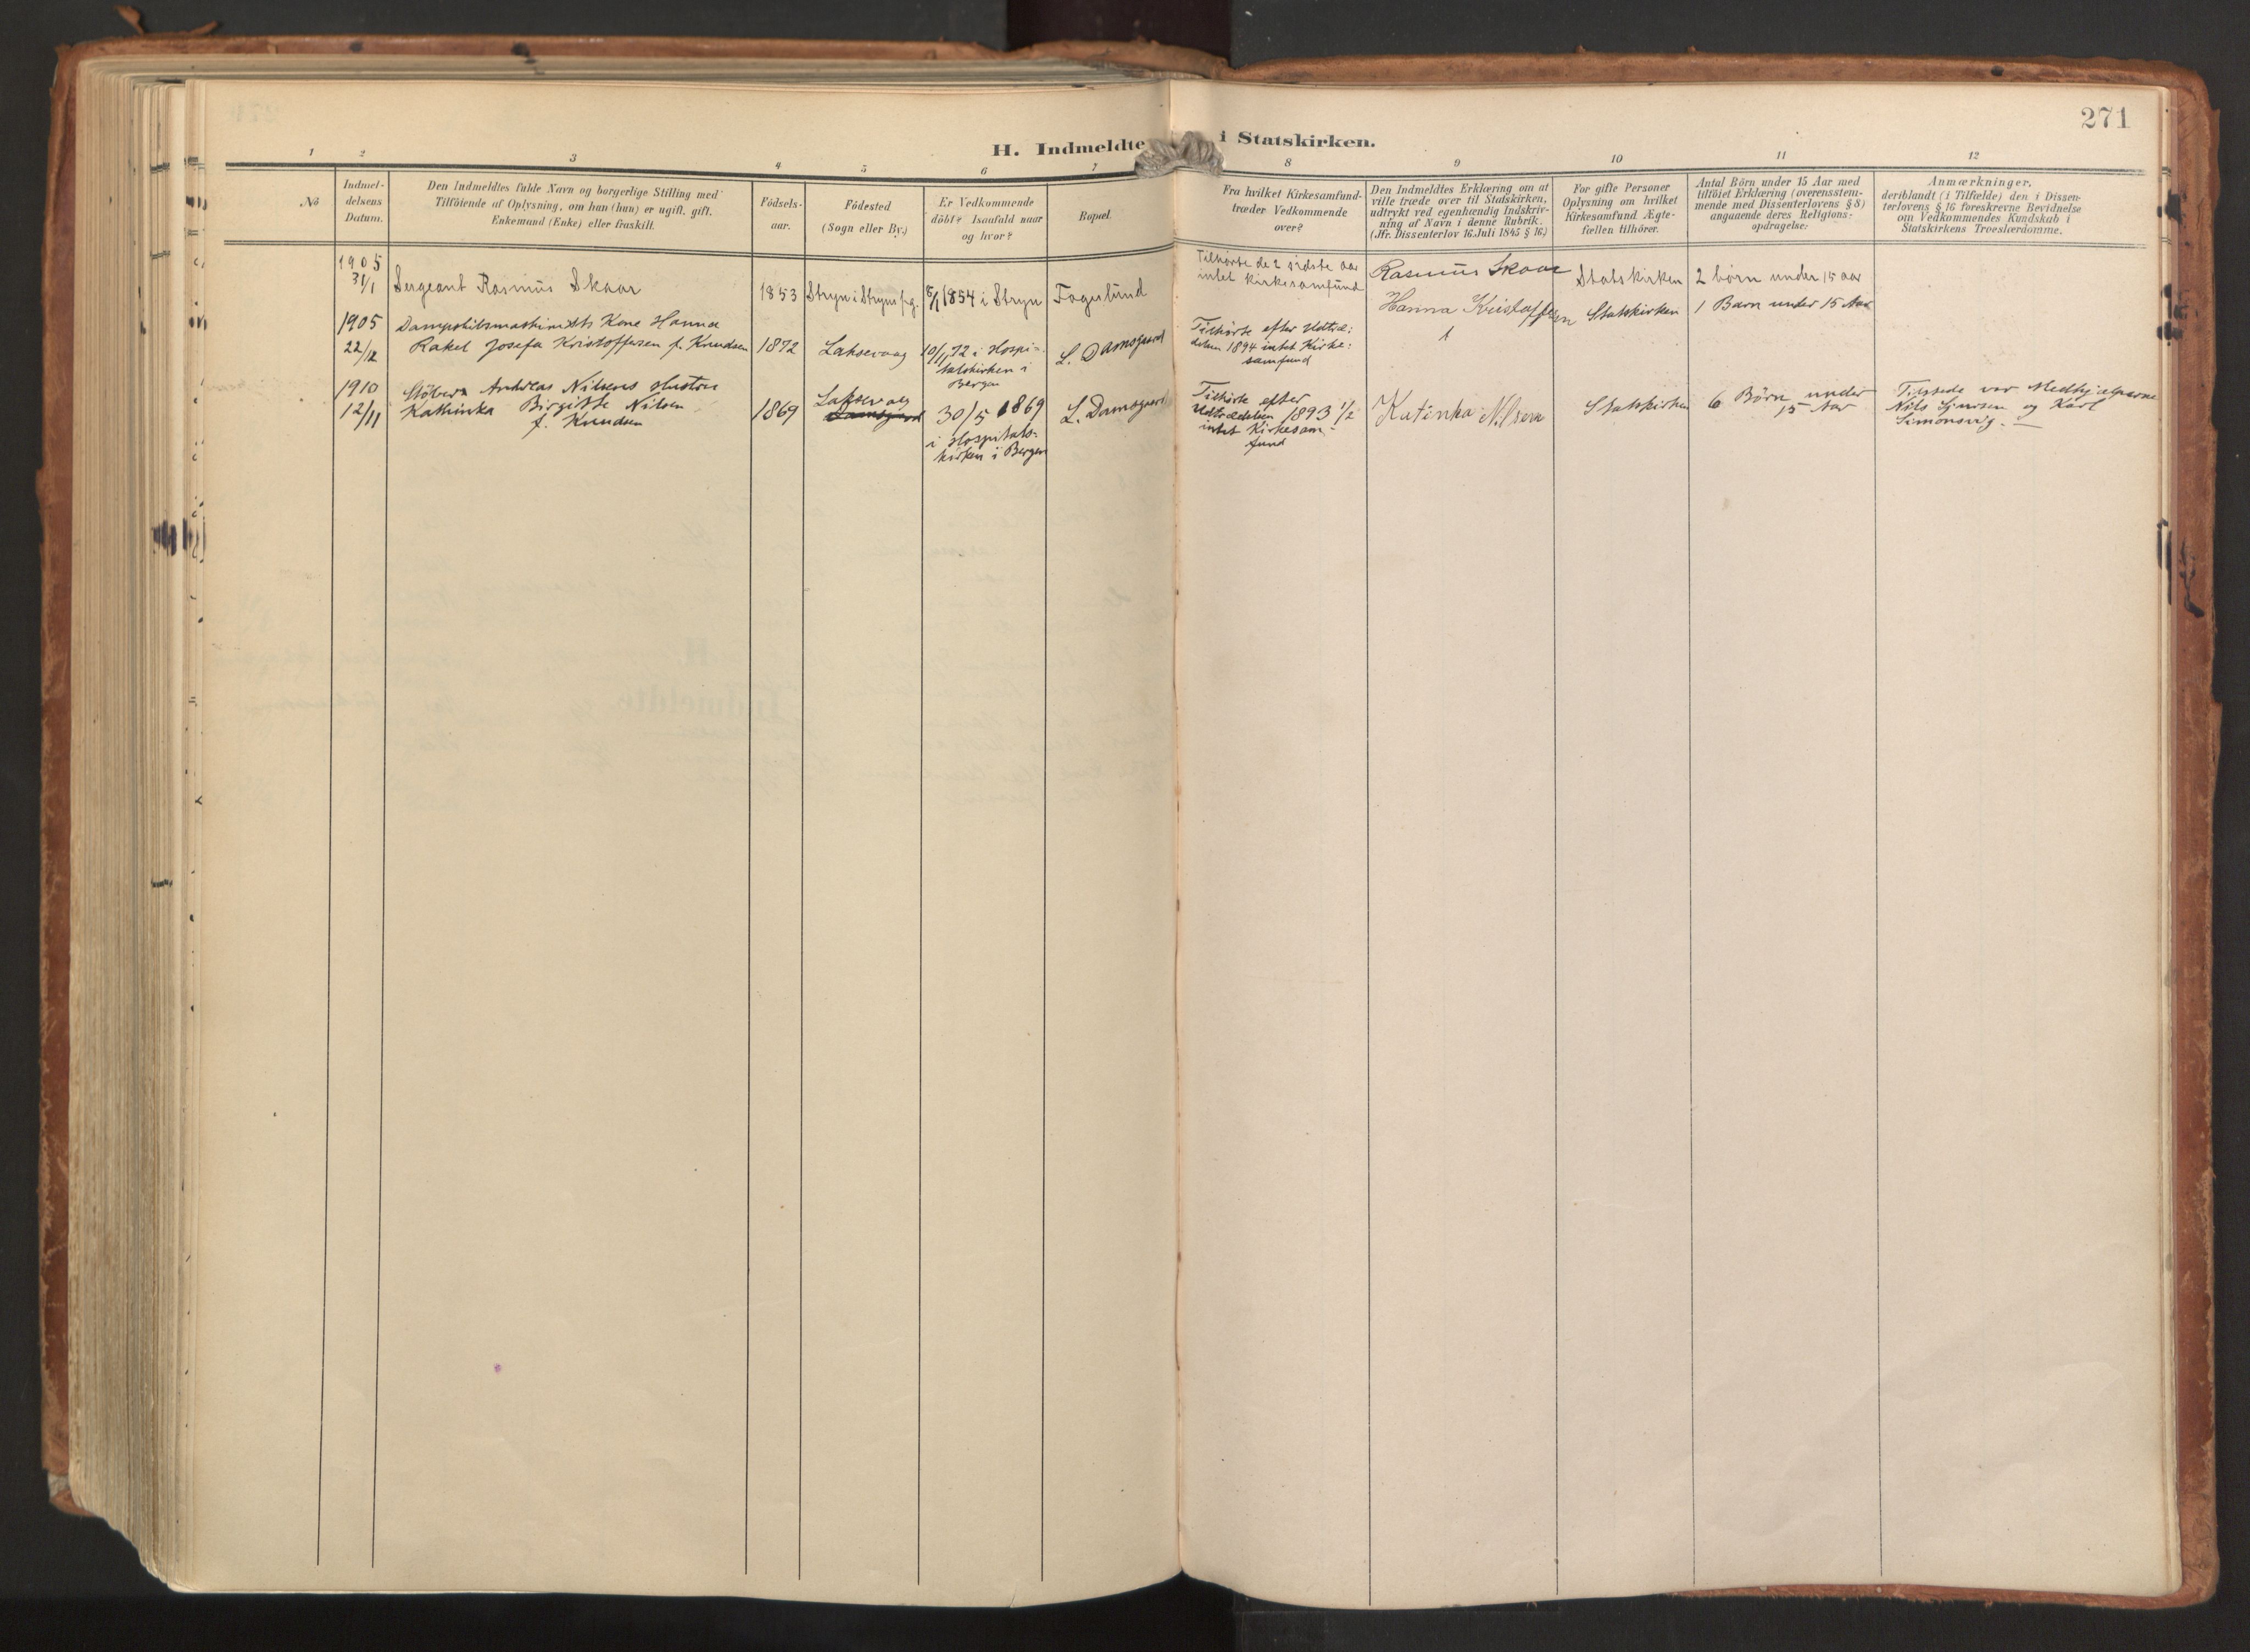 271
H. Indmeldte i Statskirken.
1 2 3 4 5 6 7 8 9 10 11 12
No
Indmel-
delsens
Datum.
Den Indmeldtes fulde Navn og borgerlige Stilling med
Tilföiende af Oplysning, om han (hun) er ugift, gift,
Enkemand (Enke) eller fraskilt.
Födsels-
aar.
Födested
(Sogn eller By.)
Er Vedkommende
döbt? Isaafald naar
og hvor?
Bopæl.
Fra hvilket Kirkesamfund-
træder Vedkommende
over?
Den Indmeldtes Erklæring om at
ville træde over til Statskirken,
udtrykt ved egenhændig Indskriv-
ning af Navn i denne Rubrik.
(Jfr. Dissenterlov 16. Juli 1845 § 16.)
For gifte Personer
Oplysning om hvilket
Kirkesamfund Ægte-
fællen tilhörer.
Antal Börn under 15 Aar med
tilföiet Erklæring (overensstem-
mende med Dissenterlovens § 8)
angaaende deres Religions-
opdragelse:
Anmærkninger,
deriblandt (i Tilfælde) den i Dissen-
terlovens § 16 foreskrevne Bevidnelse
om Vedkommendes Kundskab i
Statskirkens Troeslærdomme.
1905
31/1
Sergeant Rasmus Skaar
1853
Stryn i Stryns pg.
8/1 1854 i Stryn
Fageslund
Tilhørte de 2 sidste aar
intet kirkesamfund
Rasmus Skaar
Statskirken
2 børn under 15 aar
1905
22/12
Dampskibsmaskinists Kone Hanna
Rakel Josefa Kristoffersen f. Knudsen
1872
Laksevaag
10/11 72 i Hospi-
talskirken i
Bergen
L. Damsgaard
Tilhörte efter Udtræ-
delsen 1894 intet Kirke-
samfund
Hanna Kristoffersen
Statskirken
1 Barn under 15 Aar
1910
12/11
Støbera Andreas Nilsens Hustru
Kathinka Birgitte Nilsen
f. Knudsen
1869
Laksevaag
Damsgaard
30/5 1869
i Hospitals-
kirken i Bergen
L. Damsgaard
Tilhörte efter
Udtrædelsen 1893 1/2
intet Kirkesam-
fund
Katinka Nilsen
Statskirken
6 Börn under
15 Aar
Tilstede var Medhjælperne
Nils Sjursen og Karl
Simonsvig.